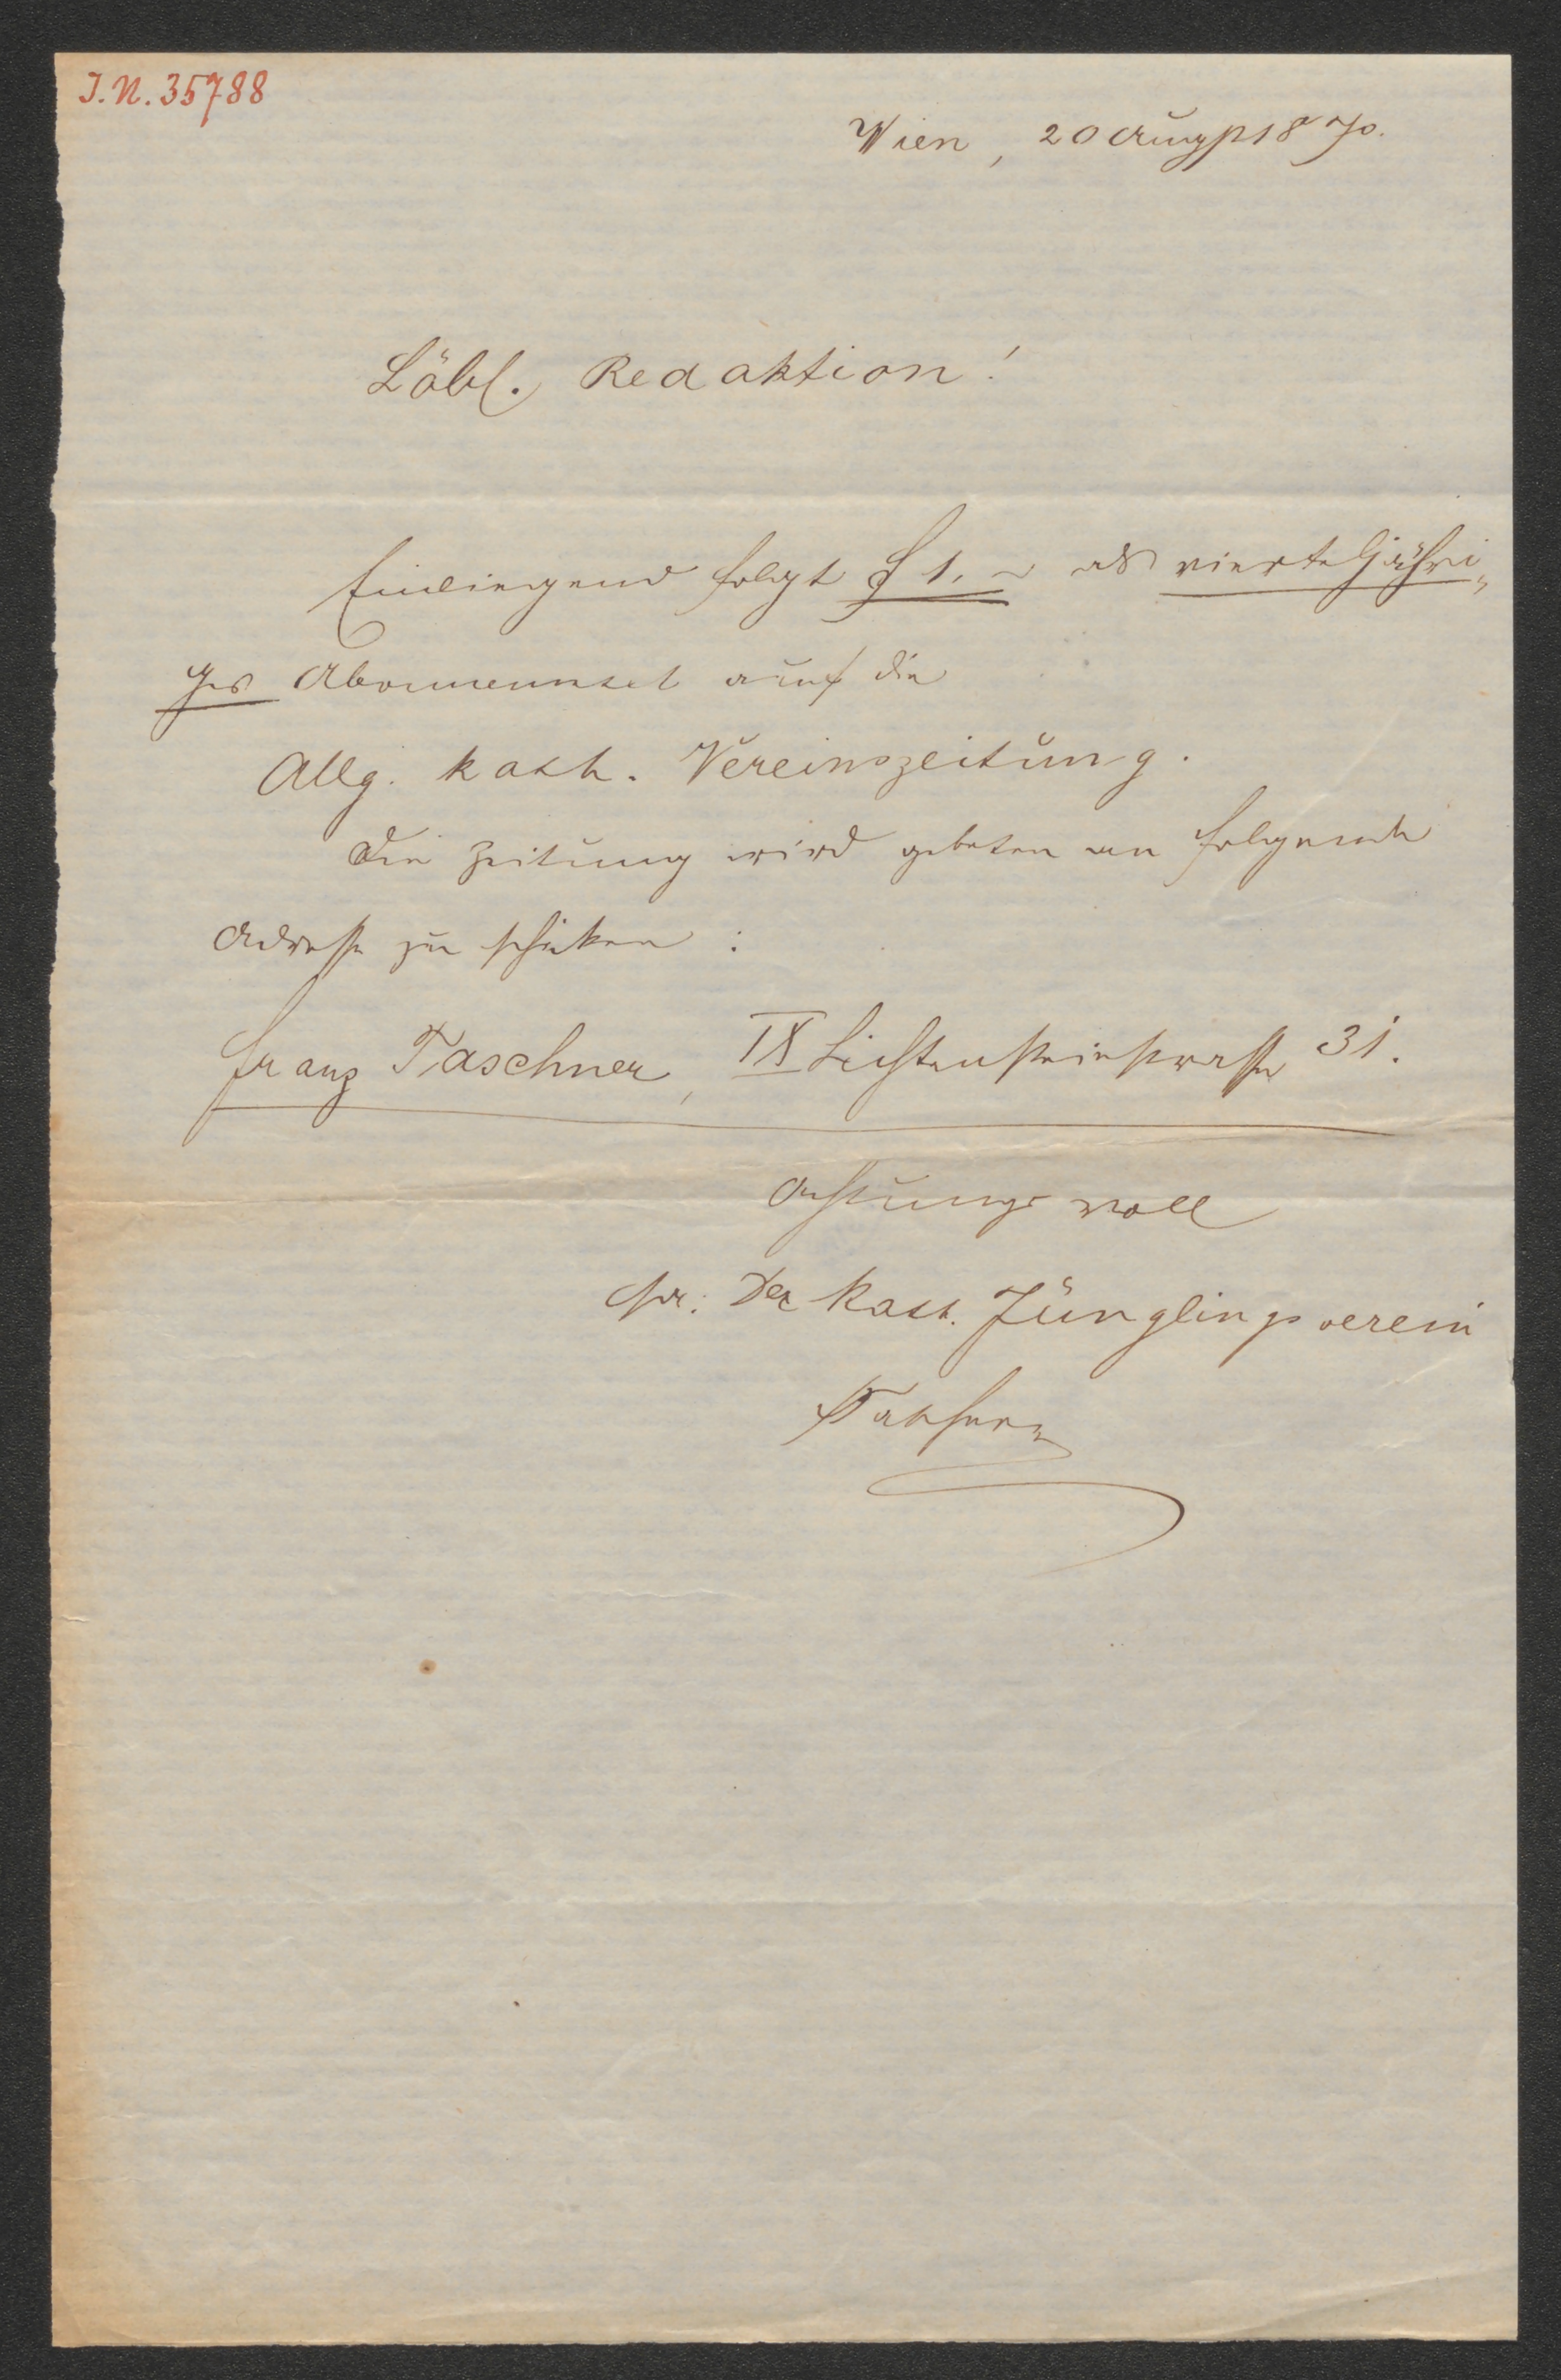 J.N. 35788
Wien, 20 August 1870.
Löbl. Redaktion!
Einliegend folgt f 1. – als vierteljähri„
ges Abonnement auf die
Allg. kath. Vereinszeitung.
Die Zeitung wird gebeten an folgende
Adresse zu schiken:
Franz Taschner, IX Lichtensteinstrasse 31.
Achtungsvoll
Der kath. Jünglingsverein
Taschner